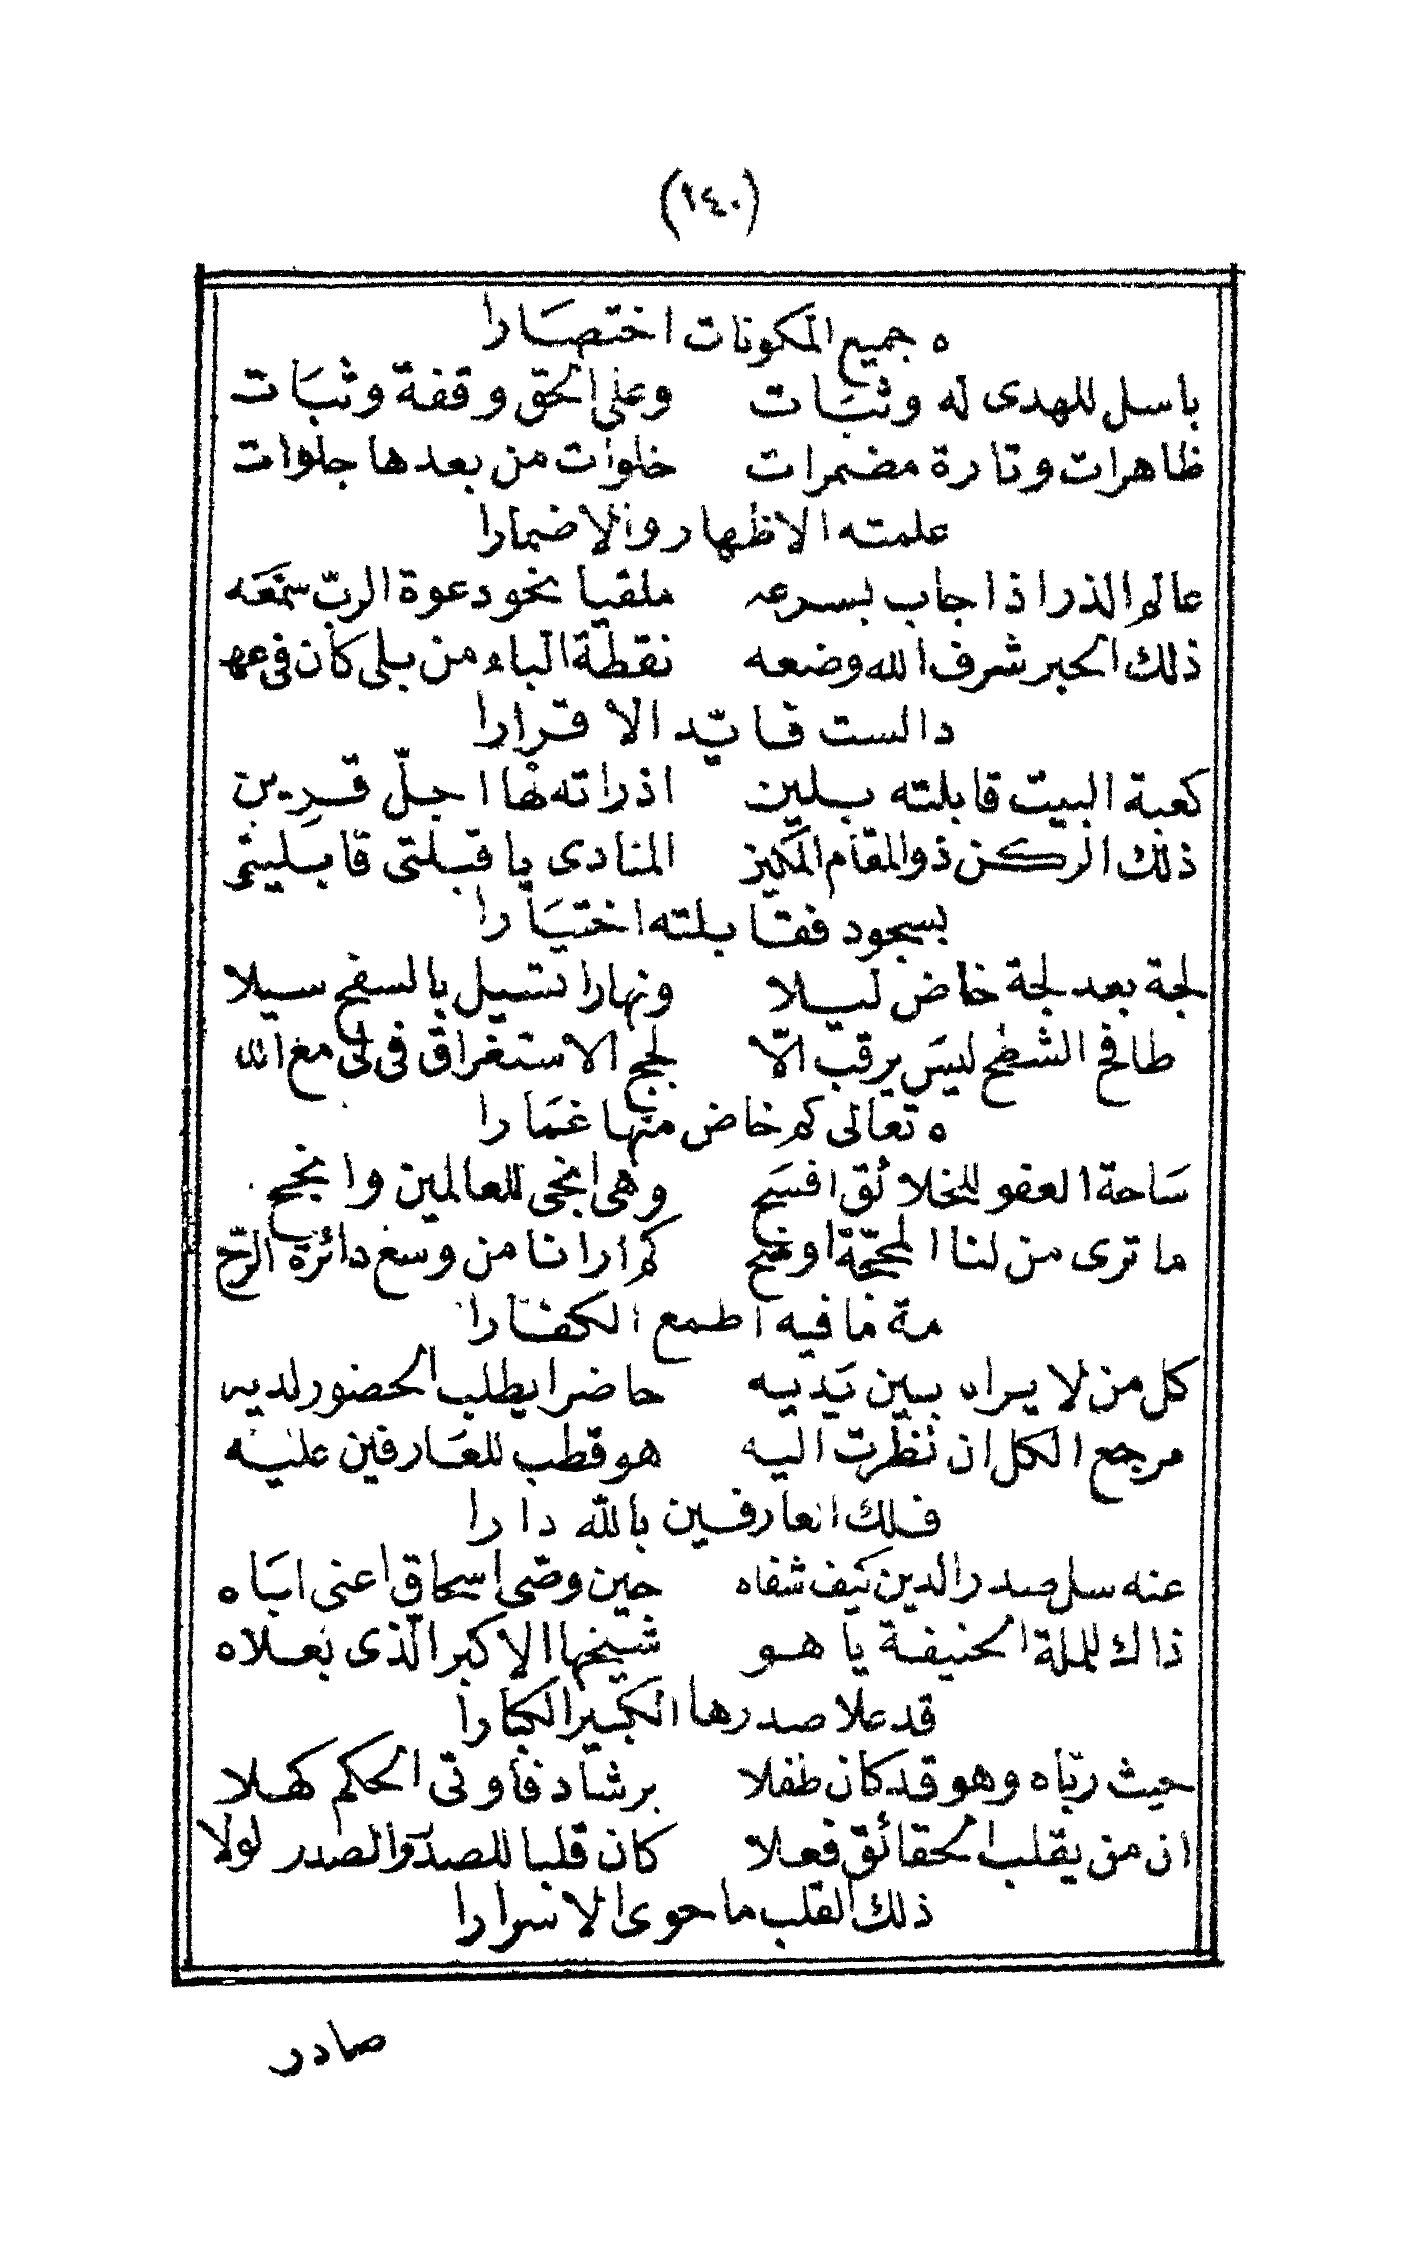 (١٤٠)
ه جميع المكونات اختصارا
باسل للهدى له وثبات وعلى الحق وقفة وثبات
ظاهرات وتارة مضمرات خلوات من بعدها جلوات
علمته الاظهار والاضمارا
عالم الذر اذ اجاب بسرعه ملقيا نحو دعوة الرب سمعه
ذلك الحبر شرف الله وضعه نقطة الباء من بلى كان فى عهـ
د الست فايّد الاقرارا
كعبة البيت قابلته بلين اذ راته لها اجلّ قرين
ذلك الركن ذو المقام المكين المنادى يا قبلتى قابلينى
بسجود فقابلته اختيارا
لجة بعد لجة خاض ليلا ونهارا تسيل بالسفح سيلا
طافح الشطح ليس يرقب الّا لجج الاستغراق فى لى مع الله
ه تعالى كم خاض منها غمارا
ساحة العفو للخلائق افسح وهى انجى للعالمين وانجح
ما ترى من لنا المحجّة اوضح كم ارانا من وسع دائرة الرّحـ
مة ما فيه اطمع الكفارا
كل من لا يراه بين يديه حاضرا يطلب الحضور لديه
مرجع الكل ان نظرت اليه هو قطب للعارفين عليه
فلك العارفين بالله دارا
عنه سل صدر الدين كيف شفاه حين وصّى اسحاق اعنى اباه
ذاك للملة الحنيفة يا هو شيخها الاكبر الّذى بعلاه
قد علا صدرها الكبير الكبارا
حيث ربّاه وهو قد كان طفلا برشاد فاوتى الحكم كهلا
ان من يقلب الحقائق فعلا كان قلبا للصدر والصدر لولا
ذلك القلب ما حوى الاسرارا
صادر